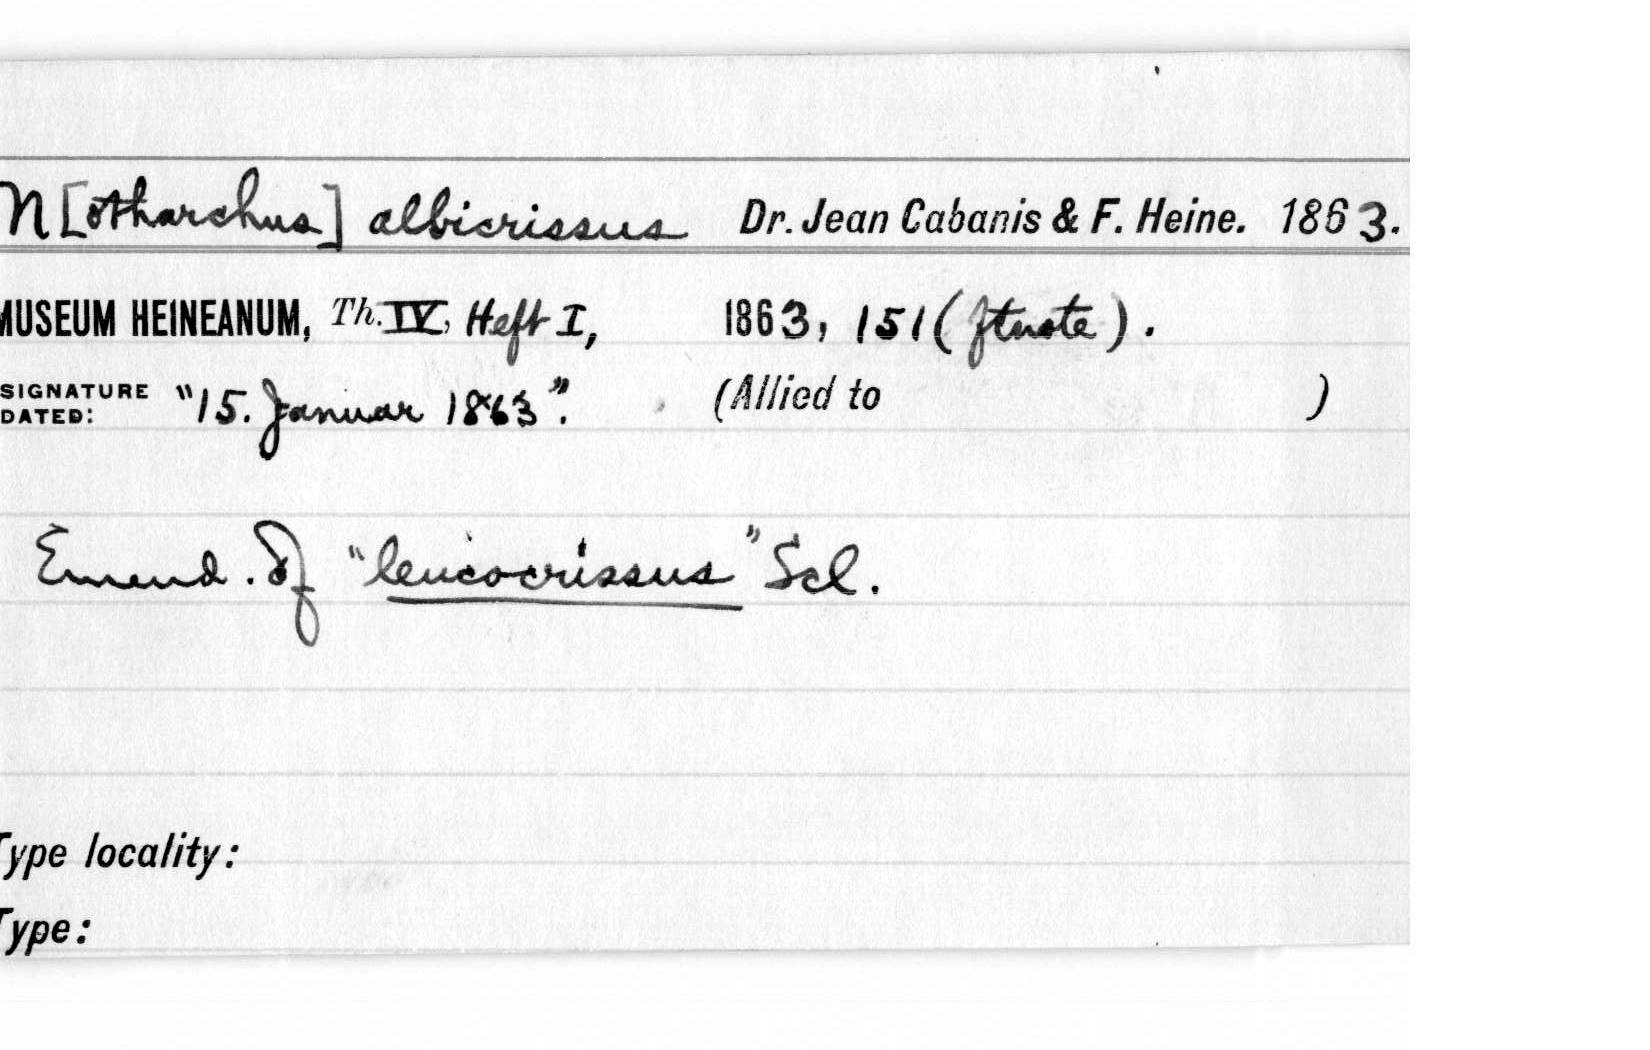 N[otharchus] albicrissus Dr. Jean Cabanis & F. Heine. 1863.
MUSEUM HEINEANUM, Th. IV, Heft I, 1863, 151 (ftnote).
SIGNATURE DATED: "15. Januar 1863". (Allied to )
Emend. of "leucocrissus" Scl.
Type locality:
Type: